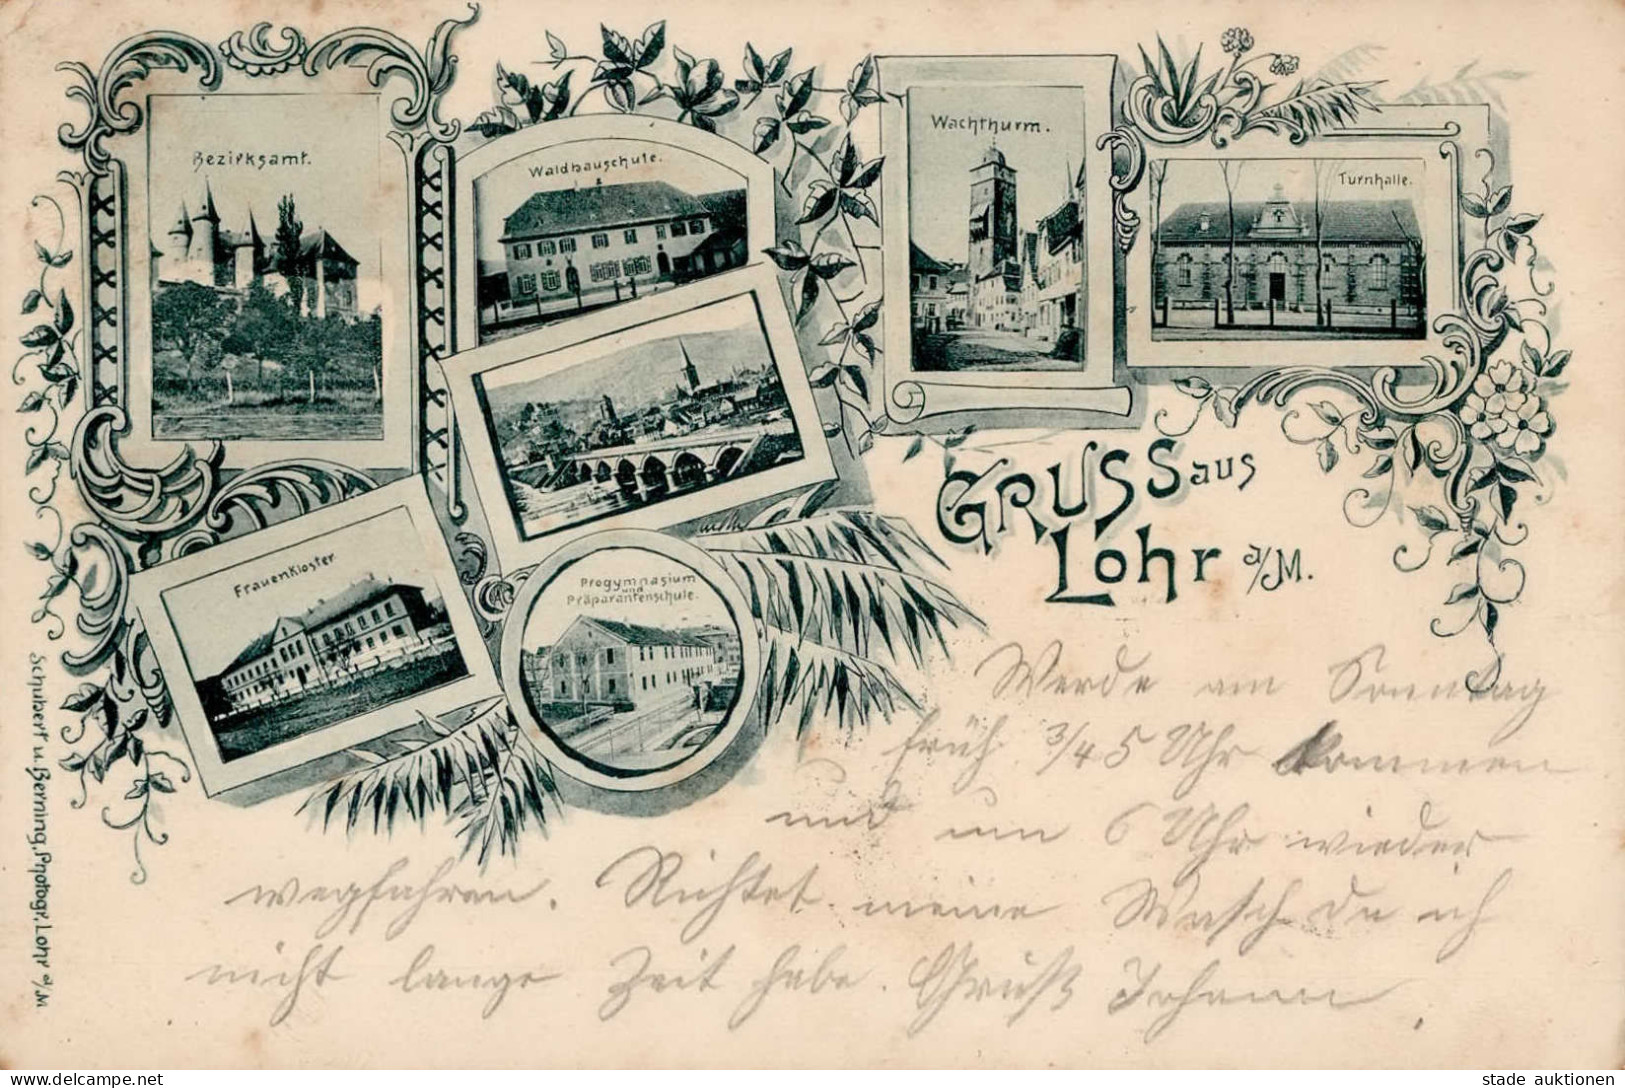 Bezirksamt.
Waldbauschule.
Wachthurm.
Turnhalle.
Gruss aus
Lohr a/M.
Frauenkloster
Progymnasium
und
Präparantenschule.
Schubert u. Berning, Photogr. Lohr a/M.
Werde am Sonntag
früh 3/4 5 Uhr kommen
und um 6 Uhr wieder
wegfahren. Richtet meine Wasch da ich
nicht lange Zeit habe. Gruß Johann
delcampe.net
stade auktionen